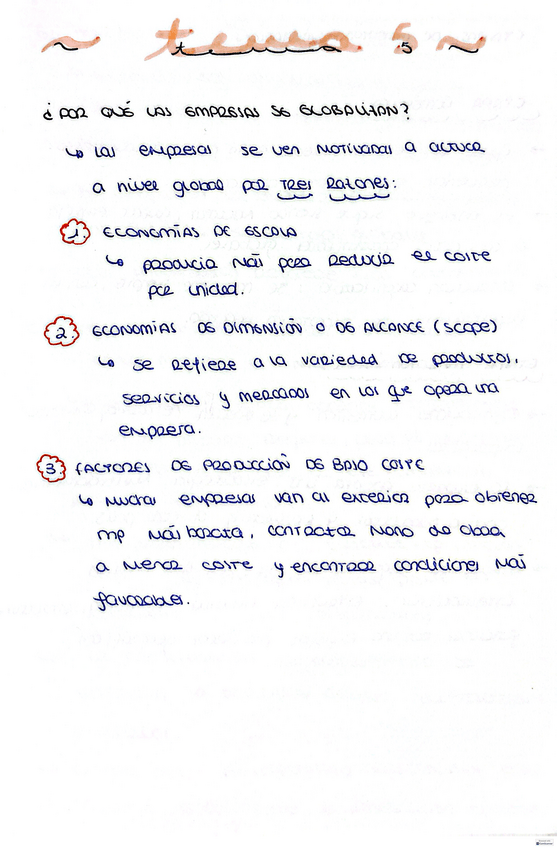 ~ tema 5 ~
¿POR QUÉ LAS EMPRESAS SE GLOBALIZAN?
↳ Las empresas se ven motivadas a actuar
a nivel global por TRES RAZONES:
1. ECONOMÍAS DE ESCALA
↳ producir más para reducir el coste
por unidad.
2. ECONOMÍAS DE DIMENSIÓN O DE ALCANCE (scope)
↳ se refiere a la variedad de productos,
servicios y mercados en los que opera una
empresa.
3. FACTORES DE PRODUCCIÓN DE BAJO COSTE
↳ Muchas empresas van al exterior para obtener
mp más barata, contratar mano de obra
a menor coste y encontrar condiciones más
favorables.